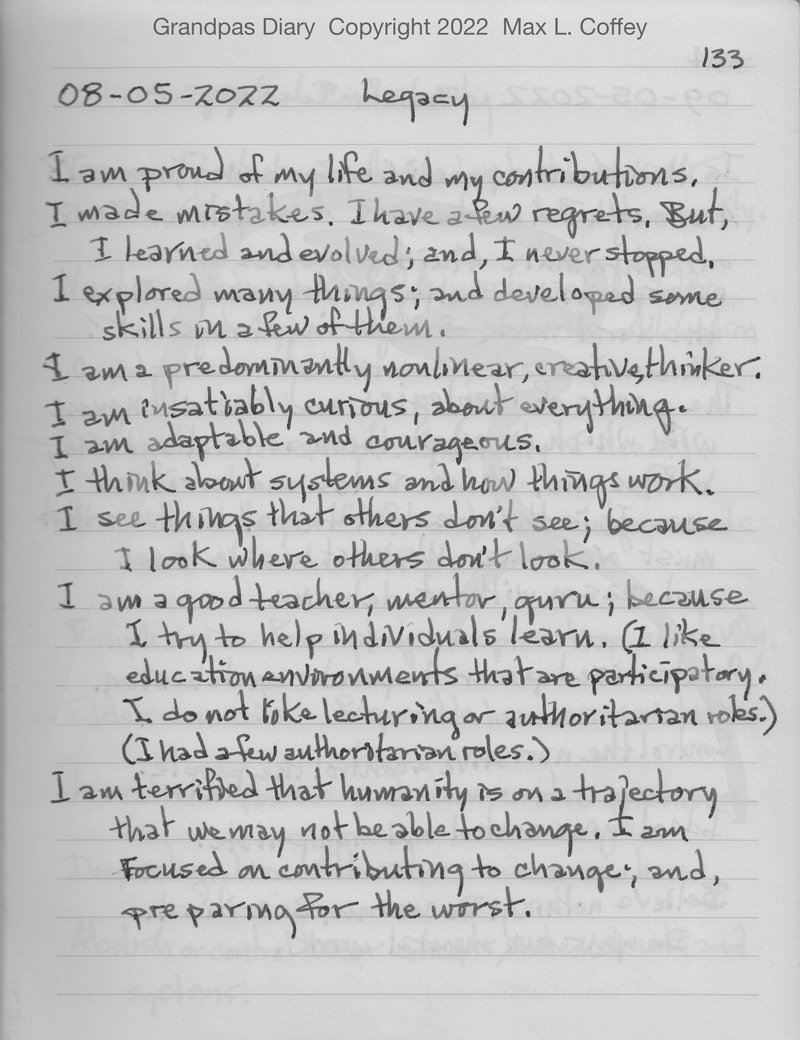 Grandpas Diary Copyright 2022 Max L. Coffey
133
08-05-2022 Legacy
I am proud of my life and my contributions.
I made mistakes. I have a few regrets. But,
I learned and evolved; and, I never stopped.
I explored many things; and developed some
skills in a few of them.
I am a predominantly nonlinear, creative, thinker.
I am insatiably curious, about everything.
I am adaptable and courageous.
I think about systems and how things work.
I see things that others don't see; because
I look where others don't look.
I am a good teacher, mentor, guru; because
I try to help individuals learn. (I like
education environments that are participatory.
I do not like lecturing or authoritarian roles.)
(I had a few authoritarian roles.)
I am terrified that humanity is on a trajectory
that we may not be able to change. I am
Focused on contributing to change; and,
preparing for the worst.